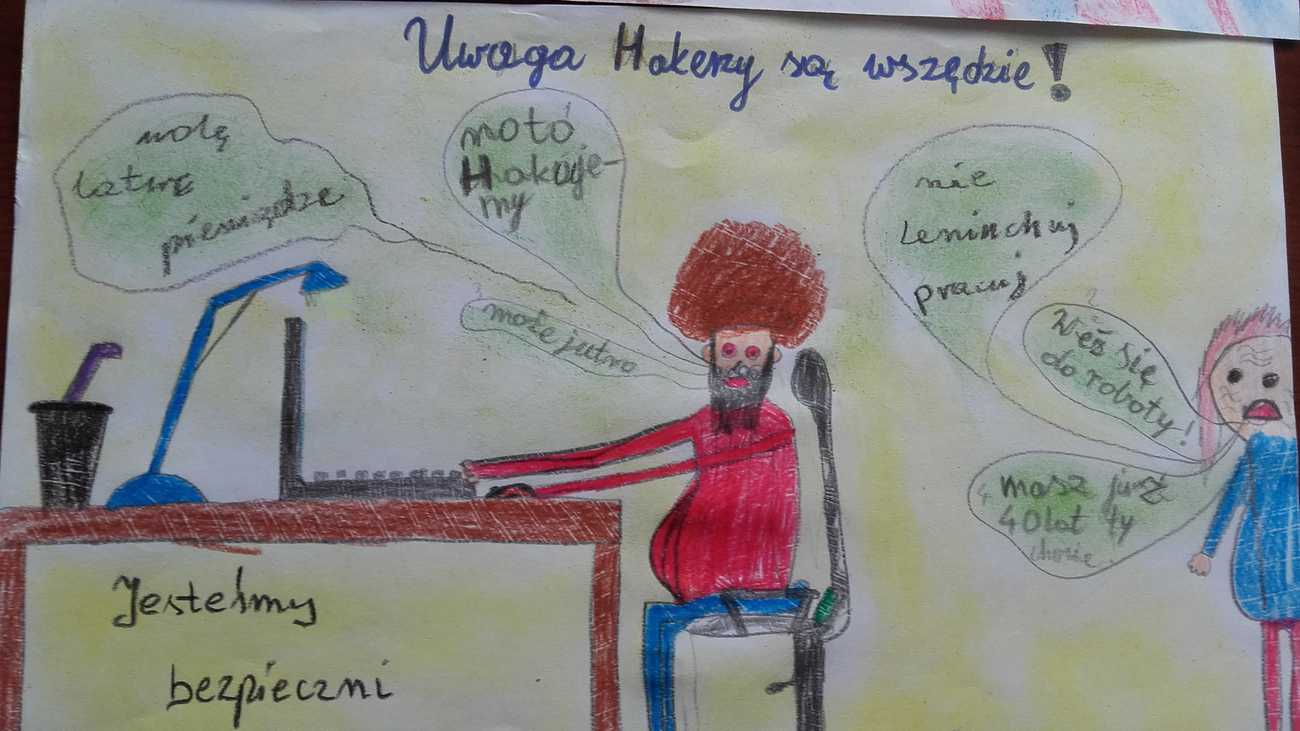 Uwaga Hakerzy są wszędzie!
wolę
łatwe
pieniądze
noto
Hakuje-
my
może jutro
nie
Leniuchuj
pracuj
Weź się
do roboty!
masz już
40 lat ty
Jesteśmy
bezpieczni